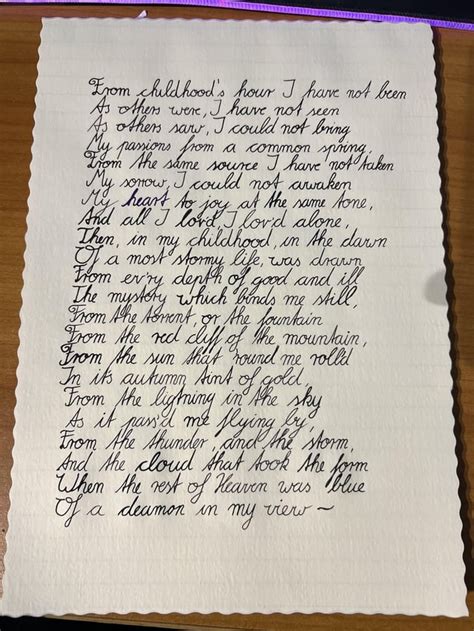 From childhood's hour I have not been
As others were, I have not seen
As others saw, I could not bring
My passions from a common spring,
From the same source I have not taken
My sorrow, I could not awaken
My heart to joy at the same tone,
And all I lov'd, I lov'd alone,
Then, in my childhood, in the dawn
Of a most stormy life, was drawn
From ev'ry depth of good and ill
The mystory which binds me still,
From the torrent, or the fountain
From the red cliff of the mountain,
From the sun that 'round me roll'd
In its autumn tint of gold,
From the ligtning in the sky
As it pass'd me flying by,
From the thunder, and the storm,
And the cloud that took the form
When the rest of Heaven was blue
Of a deamon in my view ~